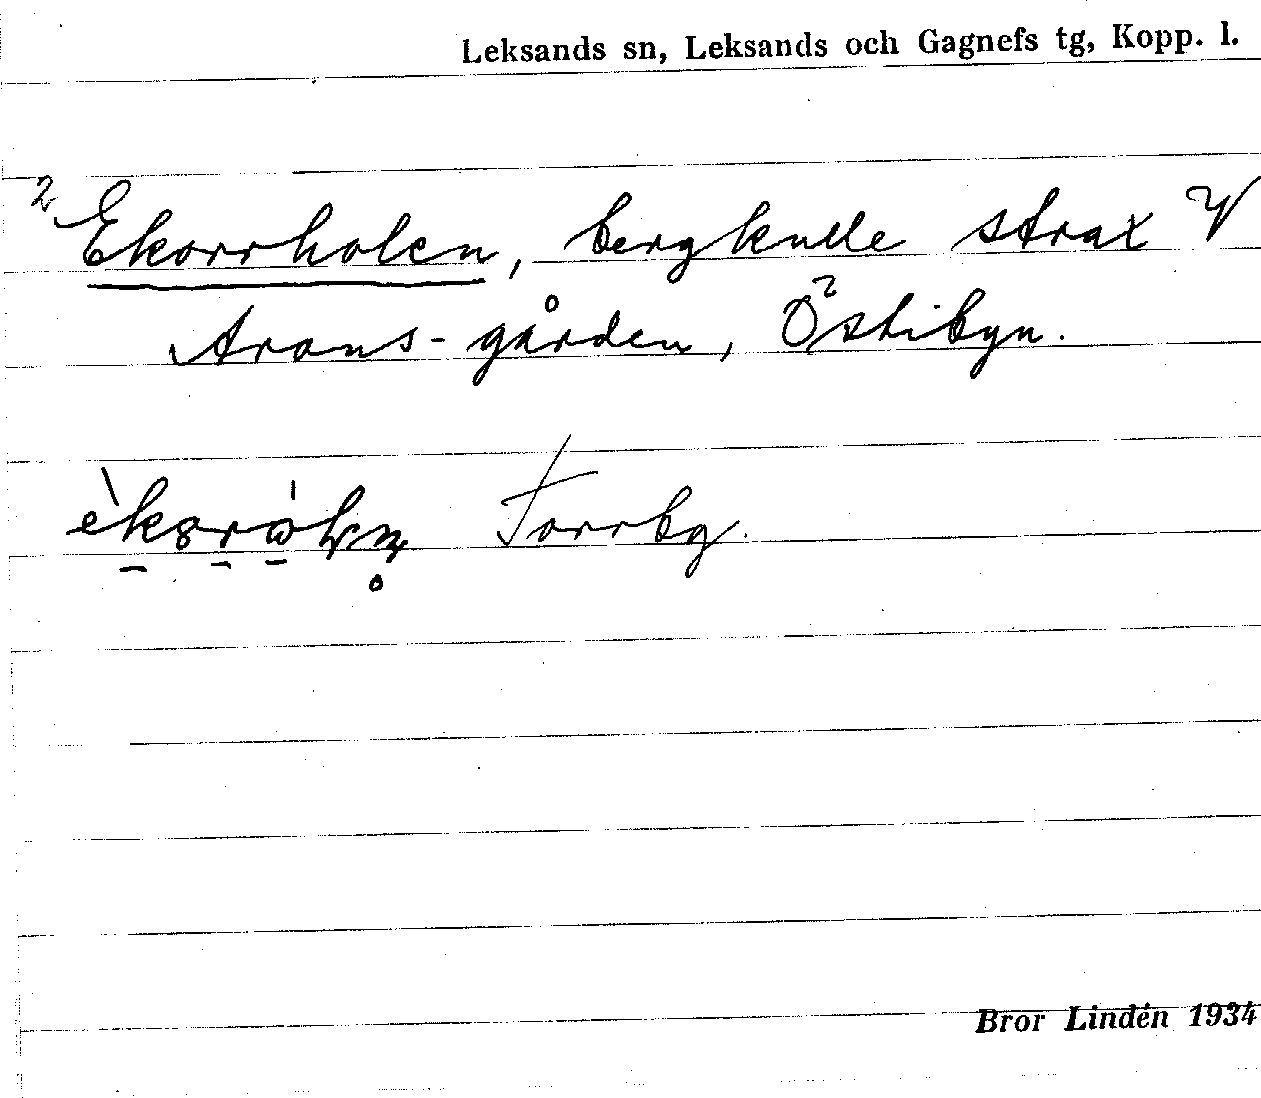 Leksands sn, Leksands och Gagnefs tg, Kopp. l.
2 Ekorrholen, bergkulle strax V
Arons-gården, Östibyn.
Torrbg.
Bror Lindén 1934